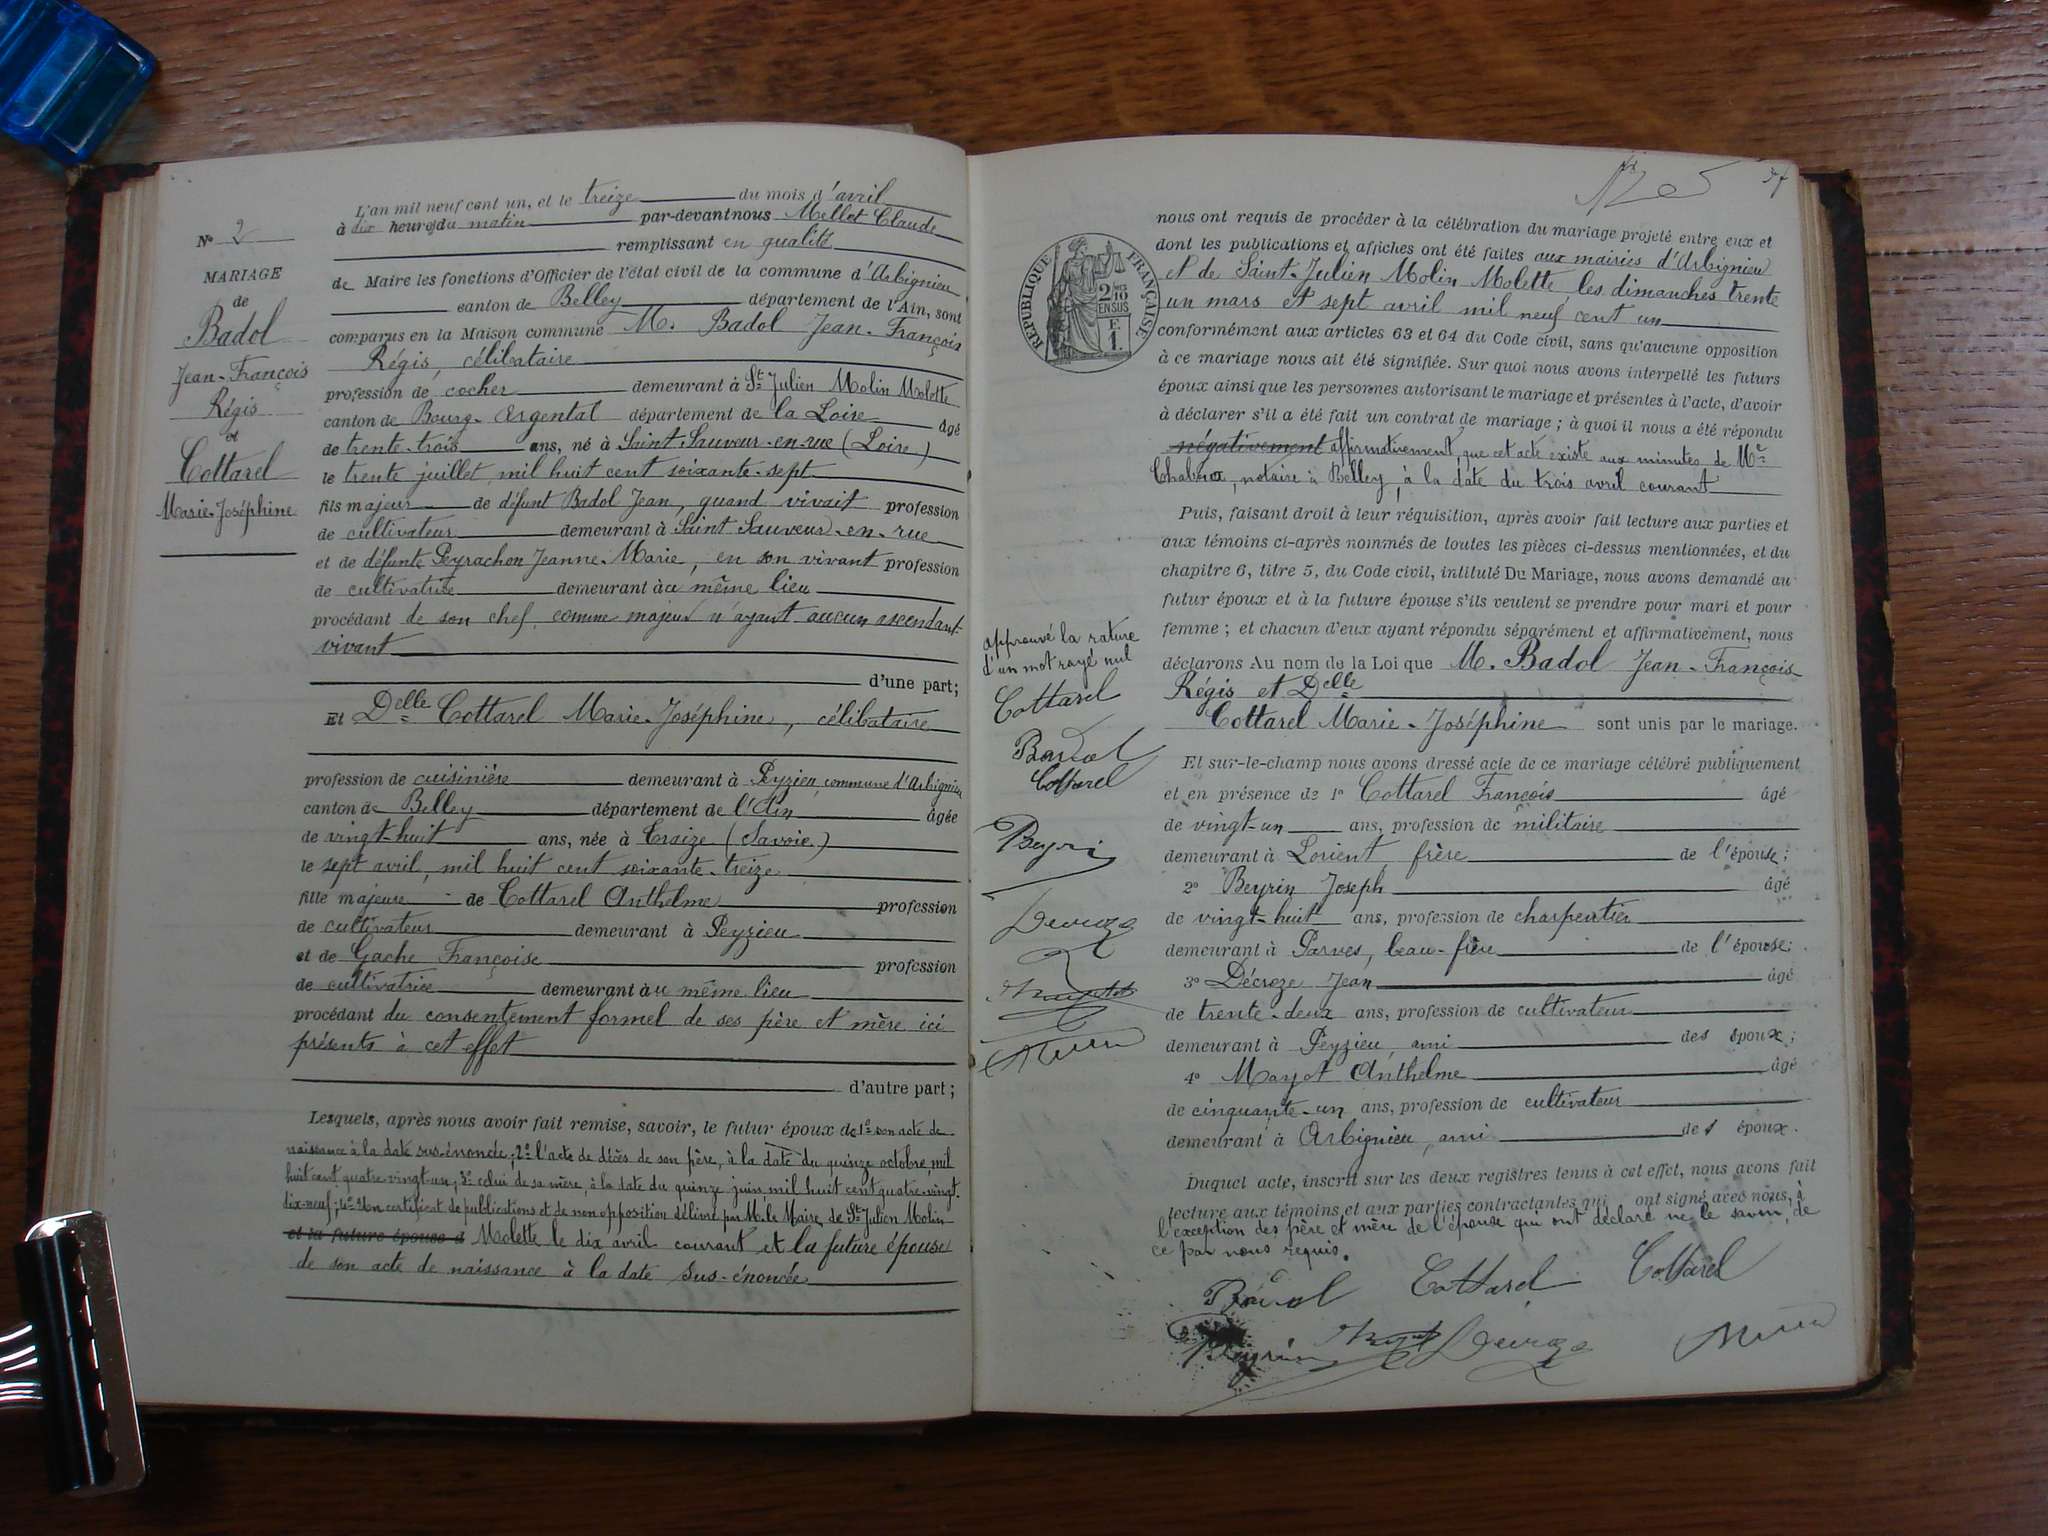 L'an mil neuf cent un, et le treize du mois d'avril
à dix heures du matin par-devant nous Mellet Claude
remplissant en qualité
de Maire les fonctions d'Officier de l'état civil de la commune d'Arbignieu
canton de Belley département de l'Ain, sont
comparus en la Maison commune M. Badol Jean-François
Régis, célibataire
profession de cocher demeurant à St Julien Molin Molette
canton de Bourg-Argental département de la Loire âgé
de trente-trois ans, né à Saint-Sauveur-en-rue (Loire)
le trente juillet mil huit cent soixante-sept
fils majeur de défunt Badol Jean, quand vivait profession
de cultivateur demeurant à Saint Sauveur-en-rue
et de défunte Peyrachon Jeanne-Marie, en son vivant profession
de cultivatrice demeurant au même lieu
procédant de son chef comme majeur n'ayant aucun ascendant
vivant
d'une part;
Et Delle Cottarel Marie-Joséphine, célibataire
profession de cuisinière demeurant à Peyzieu, commune d'Arbignieu
canton de Belley département de l'Ain âgée
de vingt-huit ans, née à Traize (Savoie)
le sept avril, mil huit cent soixante-treize
fille majeure de Cottarel Anthelme profession
de cultivateur demeurant à Peyzieu
et de Gache Françoise profession
de cultivatrice demeurant au même lieu
procédant du consentement formel de ses père et mère ici
présents à cet effet
d'autre part;
Lesquels, après nous avoir fait remise, savoir, le futur époux de 1° son acte de
naissance à la date sus-énoncée; 2° l'acte de décès de son père, à la date du quinze octobre mil
huit cent quatre-vingt-un; 3° celui de sa mère, à la date du quinze juin mil huit cent quatre-vingt
dix-neuf; 4° d'un certificat de publications et de non opposition délivré par M. le Maire de St Julien Molin
et la future épouse d Molette le dix avril courant et la future épouse
de son acte de naissance à la date sus-énoncée
N° 2
MARIAGE
de
Badol
Jean-François
Régis
et
Cottarel
Marie-Joséphine
nous ont requis de procéder à la célébration du mariage projeté entre eux et
dont les publications et affiches ont été faites aux mairies d'Arbignieu
et de Saint-Julien Molin Molette, les dimanches trente
un mars et sept avril mil neuf cent un
conformément aux articles 63 et 64 du Code civil, sans qu'aucune opposition
à ce mariage nous ait été signifiée. Sur quoi nous avons interpellé les futurs
époux ainsi que les personnes autorisant le mariage et présentes à l'acte, d'avoir
à déclarer s'il a été fait un contrat de mariage; à quoi il nous a été répondu
négativement affirmativement, que cet acte existe aux minutes de Me
notaire à Belley, à la date du trois avril courant
Puis, faisant droit à leur réquisition, après avoir fait lecture aux parties et
aux témoins ci-après nommés de toutes les pièces ci-dessus mentionnées, et du
chapitre 6, titre 5, du Code civil, intitulé Du Mariage, nous avons demandé au
futur époux et à la future épouse s'ils veulent se prendre pour mari et pour
femme; et chacun d'eux ayant répondu séparément et affirmativement, nous
déclarons Au nom de la Loi que M. Badol Jean-François-
Régis et Delle
Cottarel Marie-Joséphine sont unis par le mariage.
Et sur-le-champ nous avons dressé acte de ce mariage célébré publiquement
et en présence de 1° Cottarel François âgé
de vingt-un ans, profession de militaire
demeurant à Lorient, frère de l'épouse;
2° Beyrin Joseph âgé
de vingt-huit ans, profession de charpentier
demeurant à Parves, beau-frère de l'épouse;
3° Décroze Jean âgé
de trente-deux ans, profession de cultivateur
demeurant à Peyzieu, ami des époux;
4° Mayot Anthelme âgé
de cinquante-un ans, profession de cultivateur
demeurant à Arbignieu, ami des époux.
Duquel acte, inscrit sur les deux registres tenus à cet effet, nous avons fait
lecture aux témoins et aux parties contractantes qui ont signé avec nous, à
l'exception des père et mère de l'épouse qui ont déclaré ne le savoir, de
ce par nous requis.
Badol Cottarel Cottarel
Beyrin Decroze
RÉPUBLIQUE FRANÇAISE
2/10 EN SUS
approuvé la rature
d'un mot rayé nul
Cottarel
Badol
Cottarel
Beyrin
Decroze